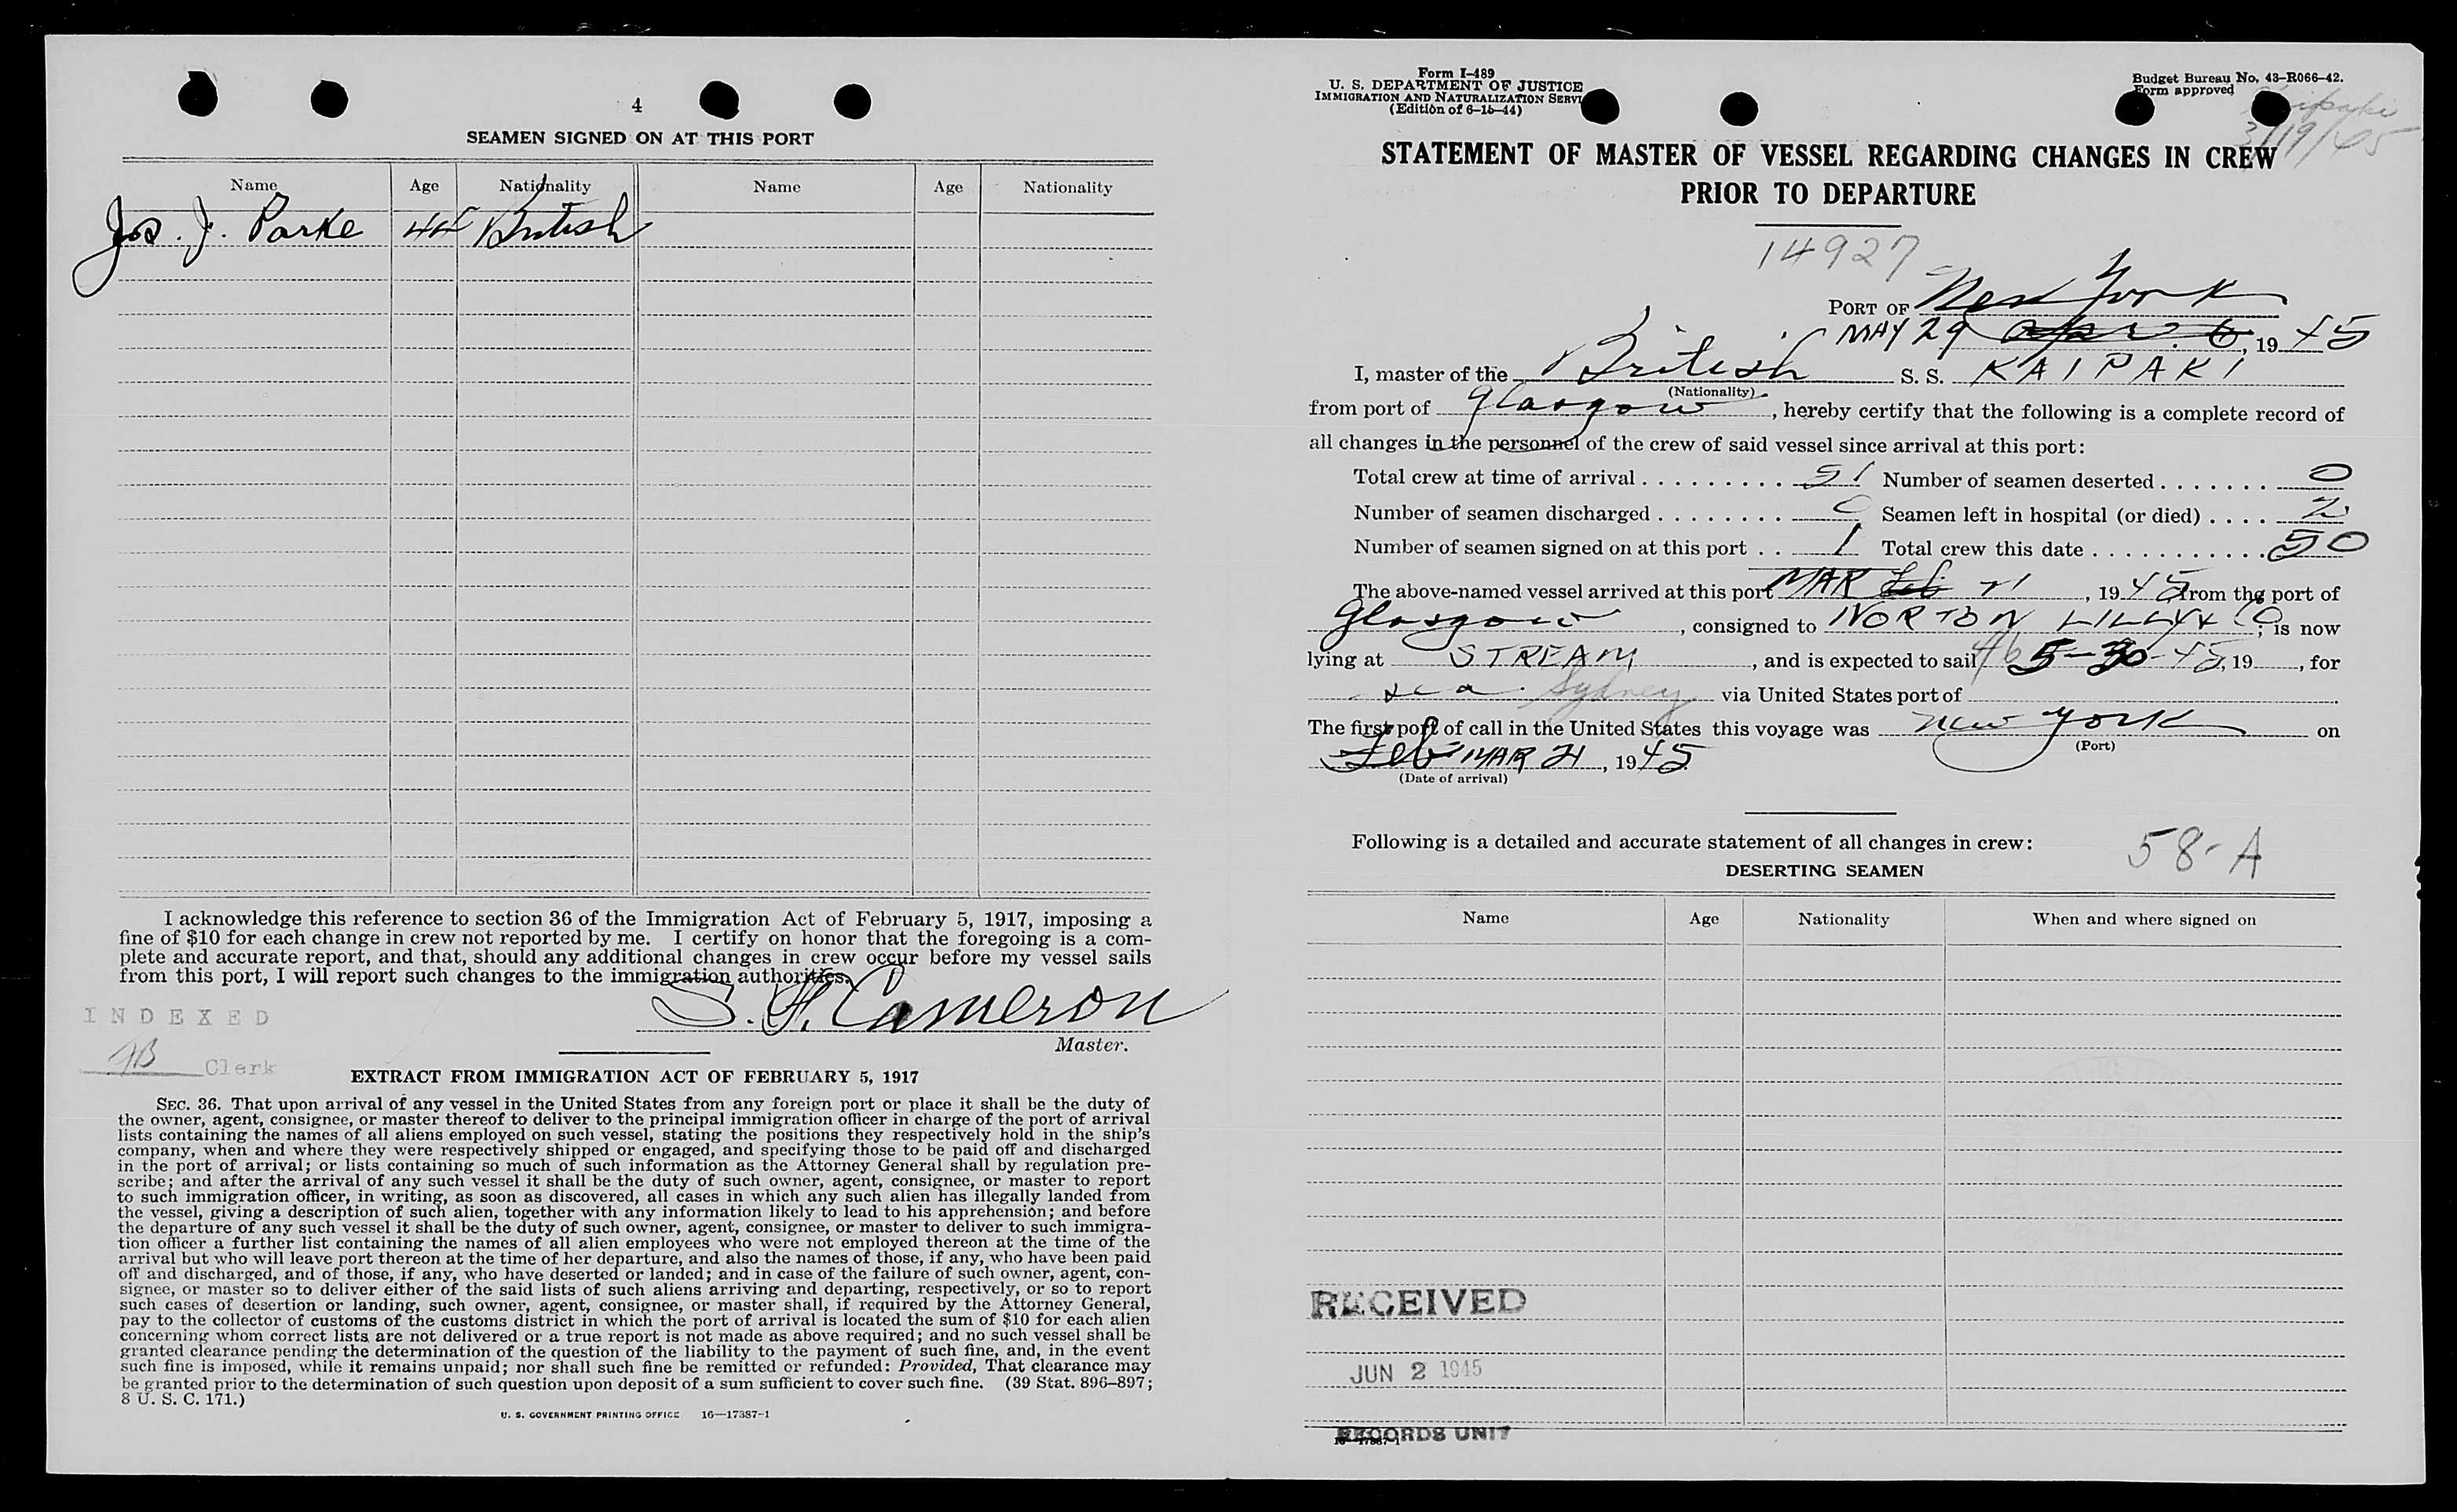 4
SEAMEN SIGNED ON AT THIS PORT
Name Age Nationality Name Age Nationality
Jos. J. Parke 44 British
I acknowledge this reference to section 36 of the Immigration Act of February 5, 1917, imposing a
fine of $10 for each change in crew not reported by me. I certify on honor that the foregoing is a com-
plete and accurate report, and that, should any additional changes in crew occur before my vessel sails
from this port, I will report such changes to the immigration authorities.
S. H. Cameron
Master.
INDEXED
Clerk
EXTRACT FROM IMMIGRATION ACT OF FEBRUARY 5, 1917
SEC. 36. That upon arrival of any vessel in the United States from any foreign port or place it shall be the duty of
the owner, agent, consignee, or master thereof to deliver to the principal immigration officer in charge of the port of arrival
lists containing the names of all aliens employed on such vessel, stating the positions they respectively hold in the ship's
company, when and where they were respectively shipped or engaged, and specifying those to be paid off and discharged
in the port of arrival; or lists containing so much of such information as the Attorney General shall by regulation pre-
scribe; and after the arrival of any such vessel it shall be the duty of such owner, agent, consignee, or master to report
to such immigration officer, in writing, as soon as discovered, all cases in which any such alien has illegally landed from
the vessel, giving a description of such alien, together with any information likely to lead to his apprehension; and before
the departure of any such vessel it shall be the duty of such owner, agent, consignee, or master to deliver to such immigra-
tion officer a further list containing the names of all alien employees who were not employed thereon at the time of the
arrival but who will leave port thereon at the time of her departure, and also the names of those, if any, who have been paid
off and discharged, and of those, if any, who have deserted or landed; and in case of the failure of such owner, agent, con-
signee, or master so to deliver either of the said lists of such aliens arriving and departing, respectively, or so to report
such cases of desertion or landing, such owner, agent, consignee, or master shall, if required by the Attorney General,
pay to the collector of customs of the customs district in which the port of arrival is located the sum of $10 for each alien
concerning whom correct lists are not delivered or a true report is not made as above required; and no such vessel shall be
granted clearance pending the determination of the question of the liability to the payment of such fine, and, in the event
such fine is imposed, while it remains unpaid; nor shall such fine be remitted or refunded: Provided, That clearance may
be granted prior to the determination of such question upon deposit of a sum sufficient to cover such fine. (39 Stat. 896–897;
8 U. S. C. 171.)
U. S. GOVERNMENT PRINTING OFFICE 16—17387-1
Form I-489
U. S. DEPARTMENT OF JUSTICE
IMMIGRATION AND NATURALIZATION SERVI
(Edition of 6-15-44)
Budget Bureau No. 43-R066-42.
Form approved
Kaipaki
3/19/45
STATEMENT OF MASTER OF VESSEL REGARDING CHANGES IN CREW
PRIOR TO DEPARTURE
14927
PORT OF New York
MAY 29 Apr. 6, 19 45
I, master of the British S. S. KAIPAKI
(Nationality)
from port of Glasgow, hereby certify that the following is a complete record of
all changes in the personnel of the crew of said vessel since arrival at this port:
Total crew at time of arrival . . . . . . . . . . 51 Number of seamen deserted . . . . . . . 0
Number of seamen discharged . . . . . . . . 0 Seamen left in hospital (or died) . . . . 2
Number of seamen signed on at this port . . 1 Total crew this date . . . . . . . . . . . 50
The above-named vessel arrived at this port MAR Feb 21, 19 45 from the port of
Glasgow, consigned to NORTON LILLY & Co; is now
lying at STREAM, and is expected to sail 5-30-45, 19 , for
sea. Sydney via United States port of
The first port of call in the United States this voyage was New York on
(Port)
Feb MAR 21, 19 45
(Date of arrival)
Following is a detailed and accurate statement of all changes in crew:
58-A
DESERTING SEAMEN
Name Age Nationality When and where signed on
RECEIVED
JUN 2 1945
RECORDS UNIT